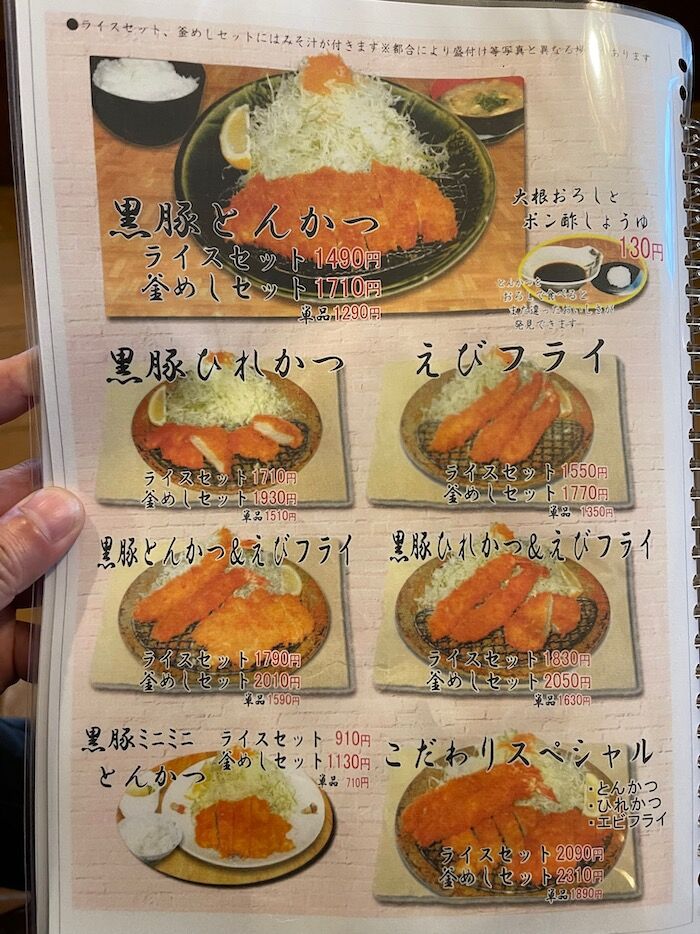 ●ライスセット、釜めしセットにはみそ汁が付きます※都合により盛付け等写真と異なる場 あります
黒豚とんかつ
ライスセット 1490円
釜めしセット 1710円
単品1290円
大根おろしと
ポン酢しょうゆ
130円
とんかつを
おろしで食べると
また違ったおいしさが
発見できます
黒豚ひれかつ
ライスセット1710円
釜めしセット1930円
単品1510円
えびフライ
ライスセット1550円
釜めしセット1770円
単品1350円
黒豚とんかつ&えびフライ
ライスセット1790円
釜めしセット2010円
単品1590円
黒豚ひれかつ&えびフライ
ライスセット1830円
釜めしセット2050円
単品1630円
黒豚ミニミニ
とんかつ
ライスセット 910円
釜めしセット1130円
単品 710円
こだわりスペシャル
・とんかつ
・ひれかつ
・エビフライ
ライスセット2090円
釜めしセット2310円
単品1890円